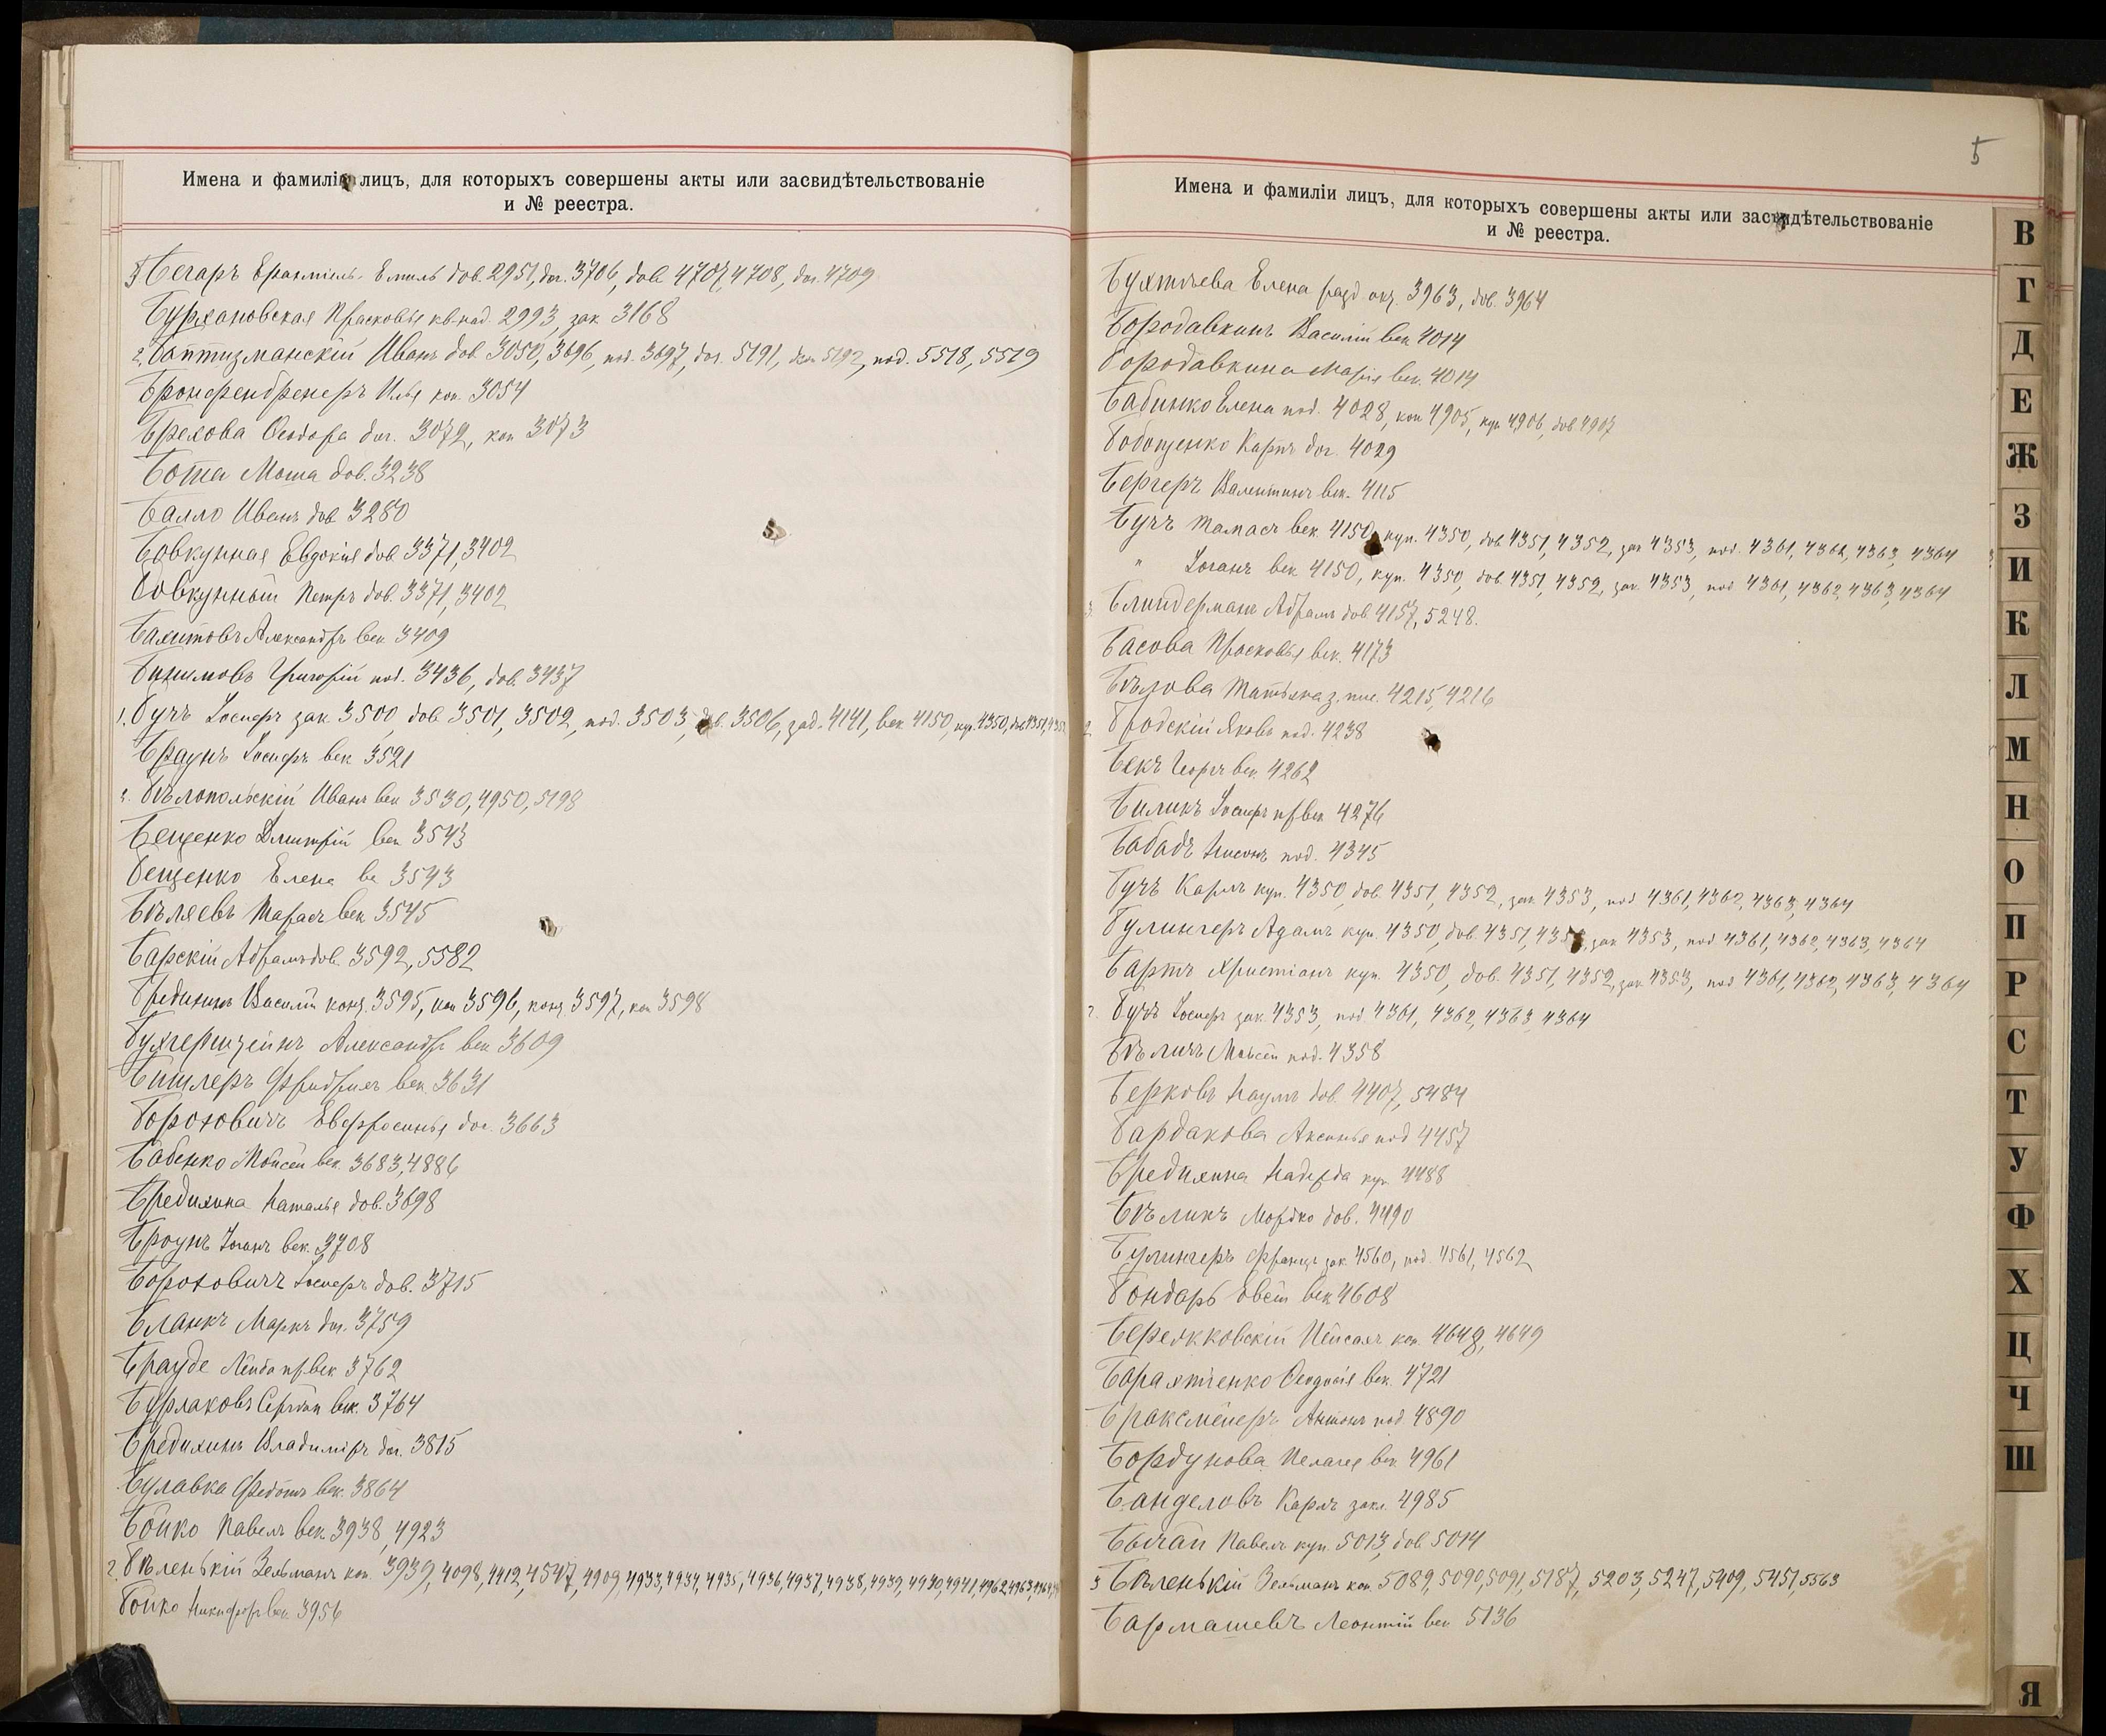 Имена и фамиліи лицъ, для которыхъ совершены акты или засвидѣтельствованіе
и № реестра.
Бегаръ Ерахміель-Емиль дов. 2951, дог. 3706, дов. 4707, 4708, дог. 4709
Бурхановская Прасковья 2993, зак 3168
2. Баптизманскій Иванъ дов. 3050, 3696, под. 3697, дог. 5191, 5192, под. 5518, 5519
Бронфенбренеръ Илья коп. 3054
Брехова Ѳеодора дог. 3072, коп 3073
Бота Моша дов. 3238
Балло Иванъ дов 3280
Бовкунная Евдокія дов. 3371, 3402
Бовкунный Петръ дов. 3371, 3402
Бахитовъ Александръ век. 3409
Григорій под. 3436, дов. 3437
1. Бучъ Іосифъ зак 3500, дов. 3501, 3502, под. 3503, дов. 3506, зад. 4141, век 4150, куп. 4350, дов 4351, 435
Браунъ Іосифъ век 3521
2. Бѣлопольскій Иванъ век 3530, 4950, 5198
Бещенко Дмитрій век 3543
Бещенко Елена ве 3543
Бѣляевъ Тарасъ век 3545
Барскій Абрамъ дов. 3592, 5582
Бредихинъ Василій 3595, коп 3596, 3597, коп 3598
Бухгерцейнъ Александръ век 3609
Битлеръ Фридрихъ век. 3631
Бороховичъ Евфросинья дог. 3663
Бабенко Мойсей век. 3683, 4886
Бредихина Наталья дов. 3698
Броунъ Іоганъ век. 3708
Бороховичъ Іосифъ дов. 3715
Бланкъ Маркъ дог. 3759
Брауде Лейба пр век 3762
Бурлаковъ век. 3764
Бредихинъ Владиміръ дог. 3815
Булавка Федотъ век. 3864
Бойко Павелъ век 3938, 4923
2. Бѣленькій Зельманъ коп. 3939, 4098, 4412, 4547, 4909, 4933, 4934, 4935, 4936, 4937, 4938, 4939, 4940, 4941, 4962, 4963, 4964
Бойко Никифоръ век. 3956
5
Имена и фамиліи лицъ, для которыхъ совершены акты или засвидѣтельствованіе
и № реестра.
Бухтѣева Елена 3963, дов. 3964
Бородавкинъ Василій век 4014
Бородавкина Марія век. 4014
Бабинко Елена под. 4028, коп 4905, куп 4906, дов 4907
Бобощенко Карпъ дог. 4029
Бергеръ Валентинъ век. 4115
Бучъ Тамасъ век. 4150, куп. 4350, дов 4351, 4352, зак 4353, под. 4361, 4362, 4363, 4364
" Іоганъ век 4150, куп. 4350, дов. 4351, 4352, зак. 4353, под 4361, 4362, 4363, 4364
3. Блиндерманъ Абрамъ дов 4157, 5248.
Басова Прасковья век. 4173
Бѣлова Татьяна 4215, 4216
2. Бродскій Яковъ под. 4238
Бекъ Георгъ век. 4262
Биликъ Іосифъ пр век 4276
Бабадъ под. 4345
Бучъ Карлъ куп. 4350, дов. 4351, 4352, зак 4353, под 4361, 4362, 4363, 4364
Булингеръ Адамъ куп. 4350, дов. 4351, 4352, зак 4353, под. 4361, 4362, 4363, 4364
Бартъ Христіанъ куп. 4350, дов. 4351, 4352, зак 4353, под 4361, 4362, 4363, 4364
2. Бучъ Іосифъ зак. 4353, под. 4361, 4362, 4363, 4364
Бѣличъ Моисей под. 4358
Берковъ Наумъ дов. 4407, 5484
Бардакова Аксинья под 4457
Бредихина Надежда куп. 4488
Бѣликъ Мордко дов. 4490
Булингеръ Францъ зак. 4560, под. 4561, 4562
Бондарь век 4608
Бережковскій Пейсахъ коп. 4648, 4649
Ѳеодосія век. 4721
Браксмейеръ Антонъ под. 4890
Бордунова Пелагея век 4961
Банделовъ Карлъ закл. 4985
Бычай Павелъ куп. 5013, дов. 5014
3 Бѣленькій Зельманъ коп. 5089, 5090, 5091, 5187, 5203, 5247, 5409, 5451, 5563
Бармашевъ Леонтій век 5136
В
Г
Д
Е
Ж
З
И
К
Л
М
Н
О
П
Р
С
Т
У
Ф
Х
Ц
Ч
Ш
Я